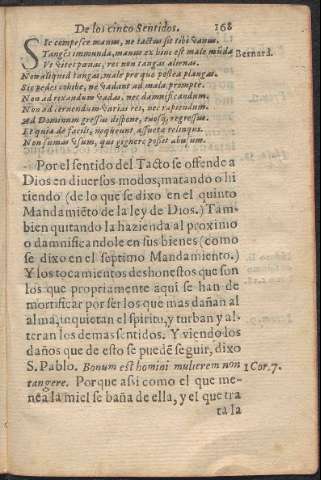 De los cinco Sentidos. 168
SIc compesce manum, ne tactus sit tibi vanus.
Tangēs immunda, manus ex hinc est male mūda Bernard.
Vt vites pœnas, res non tangas alienas.
Non aliquid tangas, male pro quo postea plangas.
Sic pedes cohibe, ne vadant ad mala prompte.
Non ad vadas, nec damnificandum.
Non ad cernendum varias res, nec rapiendum.
Ad Dominum gressus dispone, tuosq; regressus.
Et quia de facili, nequeunt assueta relinqui.
Non sumas vsum, qui gignere posset abusum.
Por el sentido del Tacto se offende a
Dios en diuersos modos, matando o hi
riendo (de lo que se dixo en el quinto
Mandamiēto de la ley de Dios.) Tam-
bien quitando la hazienda al proximo
o damnificandole en sus bienes (como
se dixo en el septimo Mandamiento.)
Y los tocamientos deshonestos que son
los que propriamente aqui se han de
mortificar por ser los que mas dañan al
alma, inquietan el spiritu, y turban y al-
teran los demas sentidos. Y viendo los
daños que de esto se puedē seguir, dixo
S. Pablo. Bonum est homini mulierem non 1 Cor. 7.
tangere. Porque assi como el que me-
nea la miel se baña de ella, y el que tra
ta la